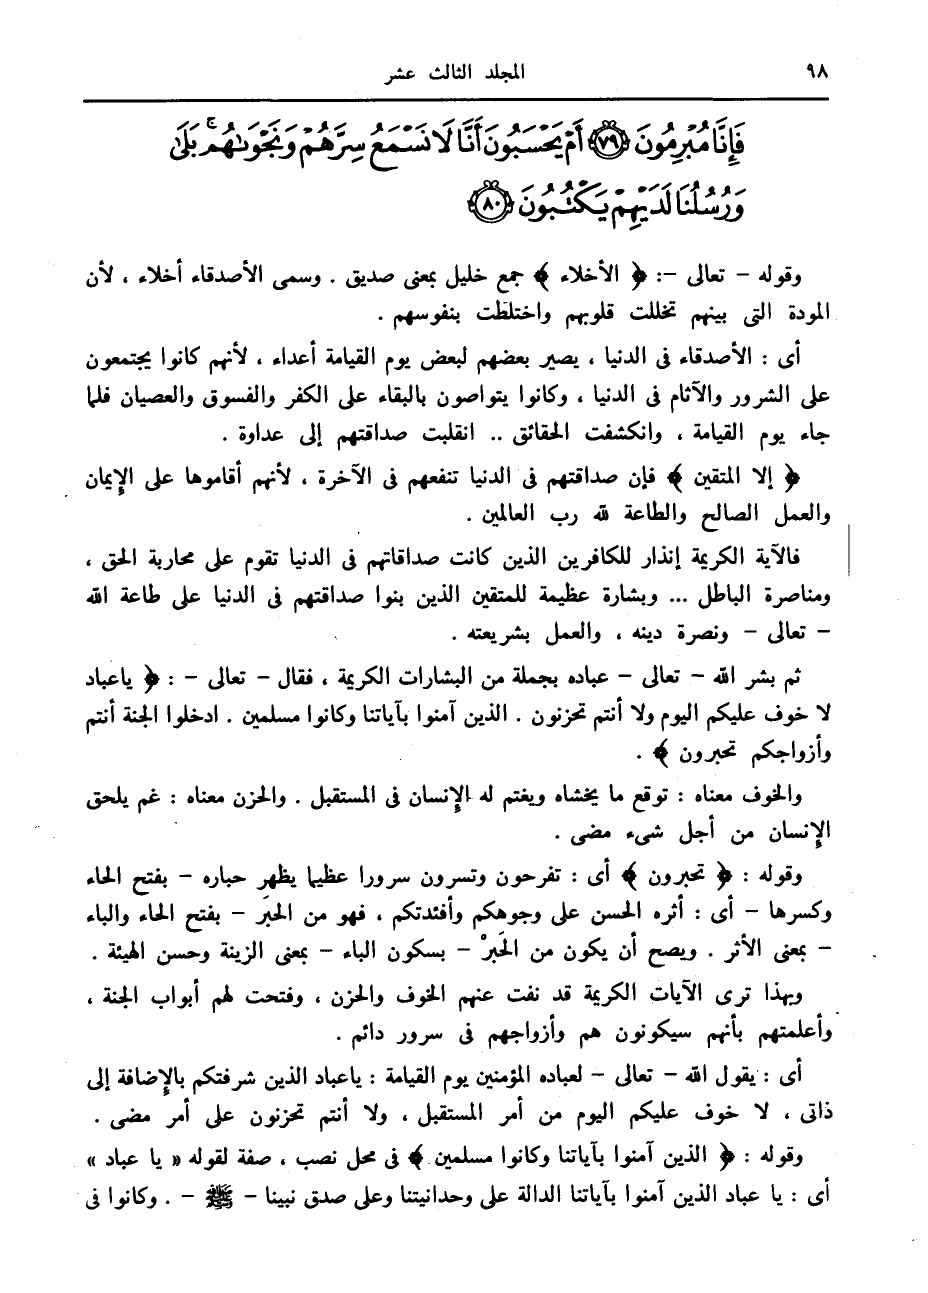 ٩٨ المجلد الثالث عشر
فَإِنَّا مُبْرِمُونَ ﴿٧٩﴾ أَمْ يَحْسَبُونَ أَنَّا لَا نَسْمَعُ سِرَّهُمْ وَنَجْوَىٰهُم ۚ بَلَىٰ
وَرُسُلُنَا لَدَيْهِمْ يَكْتُبُونَ ﴿٨٠﴾
وقوله - تعالى -: ﴿ الأخلاء ﴾ جمع خليل بمعنى صديق . وسمى الأصدقاء أخلاء ، لأن
المودة التى بينهم تخللت قلوبهم واختلطت بنفوسهم .
أى : الأصدقاء فى الدنيا ، يصير بعضهم لبعض يوم القيامة أعداء ، لأنهم كانوا يجتمعون
على الشرور والآثام فى الدنيا ، وكانوا يتواصون بالبقاء على الكفر والفسوق والعصيان فلما
جاء يوم القيامة ، وانكشفت الحقائق .. انقلبت صداقتهم إلى عداوة .
﴿ إلا المتقين ﴾ فإن صداقتهم فى الدنيا تنفعهم فى الآخرة ، لأنهم أقاموها على الإيمان
والعمل الصالح والطاعة لله رب العالمين .
فالآية الكريمة إنذار للكافرين الذين كانت صداقاتهم فى الدنيا تقوم على محاربة الحق ،
ومناصرة الباطل ... وبشارة عظيمة للمتقين الذين بنوا صداقتهم فى الدنيا على طاعة الله
- تعالى - ونصرة دينه ، والعمل بشريعته .
ثم بشر الله - تعالى - عباده بجملة من البشارات الكريمة ، فقال - تعالى - : ﴿ ياعباد
لا خوف عليكم اليوم ولا أنتم تحزنون . الذين آمنوا بآياتنا وكانوا مسلمين . ادخلوا الجنة أنتم
وأزواجكم تحبرون ﴾ .
والخوف معناه : توقع ما يخشاه ويغتم له الإنسان فى المستقبل . والحزن معناه : غم يلحق
الإنسان من أجل شىء مضى .
وقوله : ﴿ تحبرون ﴾ أى : تفرحون وتسرون سرورا عظيما يظهر حباره - بفتح الحاء
وكسرها - أى : أثره الحسن على وجوهكم وأفئدتكم ، فهو من الحَبَر - بفتح الحاء والباء
- بمعنى الأثر . ويصح أن يكون من الحَبْر - بسكون الباء - بمعنى الزينة وحسن الهيئة .
وبهذا ترى الآيات الكريمة قد نفت عنهم الخوف والحزن ، وفتحت لهم أبواب الجنة ،
وأعلمتهم بأنهم سيكونون هم وأزواجهم فى سرور دائم .
أى : يقول الله - تعالى - لعباده المؤمنين يوم القيامة : ياعباد الذين شرفتكم بالإضافة إلى
ذاتى ، لا خوف عليكم اليوم من أمر المستقبل ، ولا أنتم تحزنون على أمر مضى .
وقوله : ﴿ الذين آمنوا بآياتنا وكانوا مسلمين ﴾ فى محل نصب ، صفة لقوله « يا عباد »
أى : يا عباد الذين آمنوا بآياتنا الدالة على وحدانيتنا وعلى صدق نبينا - ﷺ - . وكانوا فى